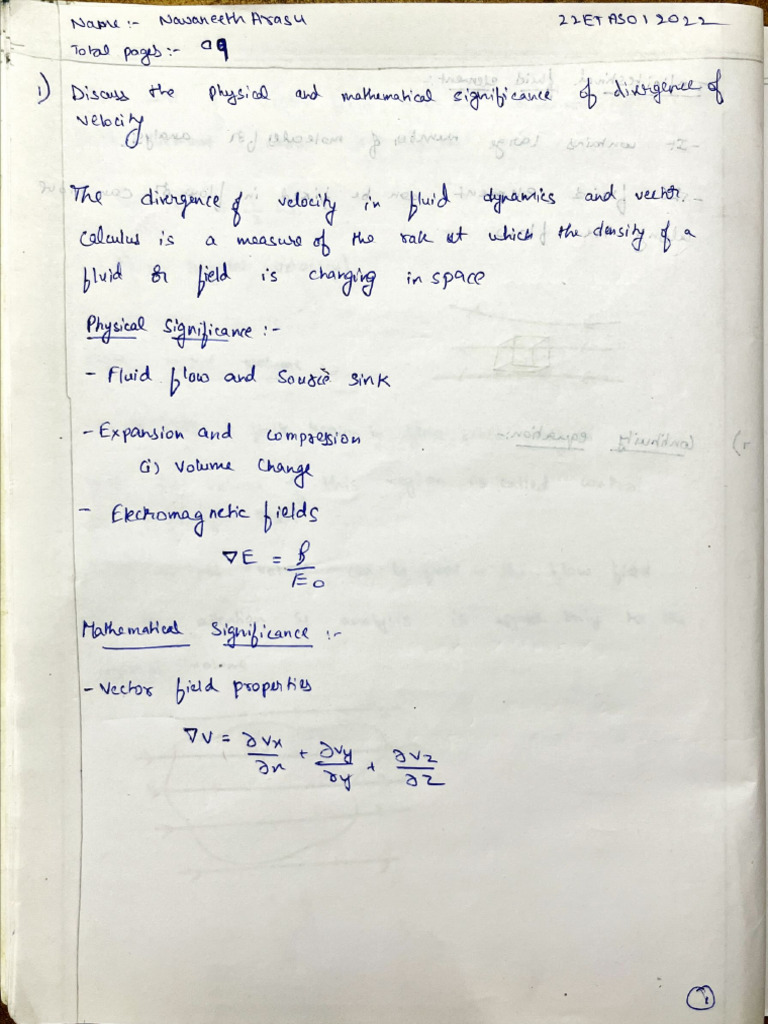 Name :- Navaneeth Arasu 22ETAS012022
Total pages :- 09
1) Discuss the physical and mathematical significance of divergence of
velocity
The divergence of velocity in fluid dynamics and vector
calculus is a measure of the rate at which the density of a
fluid or field is changing in space
Physical Significance :-
- Fluid flow and source sink
- Expansion and compression
(i) Volume Change
- Electromagnetic fields
∇E = ρ/E0
Mathematical Significance :-
- Vector field properties
∇V = ∂Vx/∂x + ∂Vy/∂y + ∂Vz/∂z
1